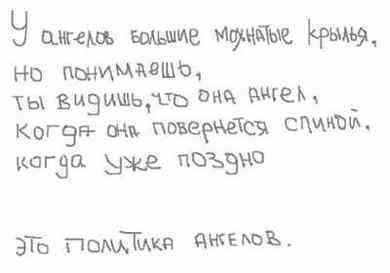 У ангелов большие мохнатые крылья,
но понимаешь,
ты видишь, что она ангел,
когда она повернется спиной.
когда уже поздно
это политика ангелов.